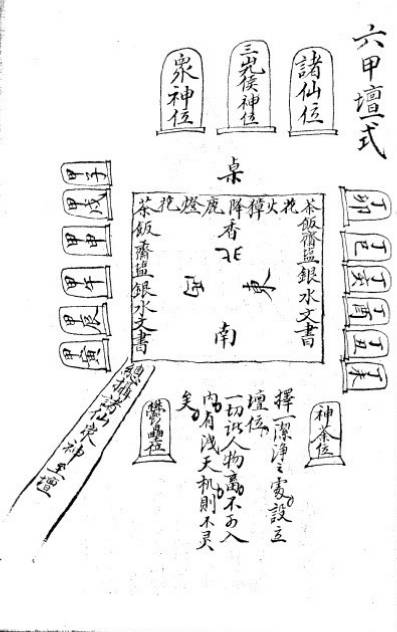 六甲壇式
諸仙位
三光侯神位
眾神位
桌
花火獐降鹿燈花
香
北
東
西
南
茶飯齋盐銀水文書
茶飯齋盐銀水文書
丁卯
丁巳
丁亥
丁酉
丁丑
丁未
甲子
甲戌
甲申
甲午
甲辰
甲寅
神茶位
擇一潔淨之處設立
壇位
一切訴人物畜不可入
内有洩天机則不灵
矣
鬱壘位
諸仙侯神至壇